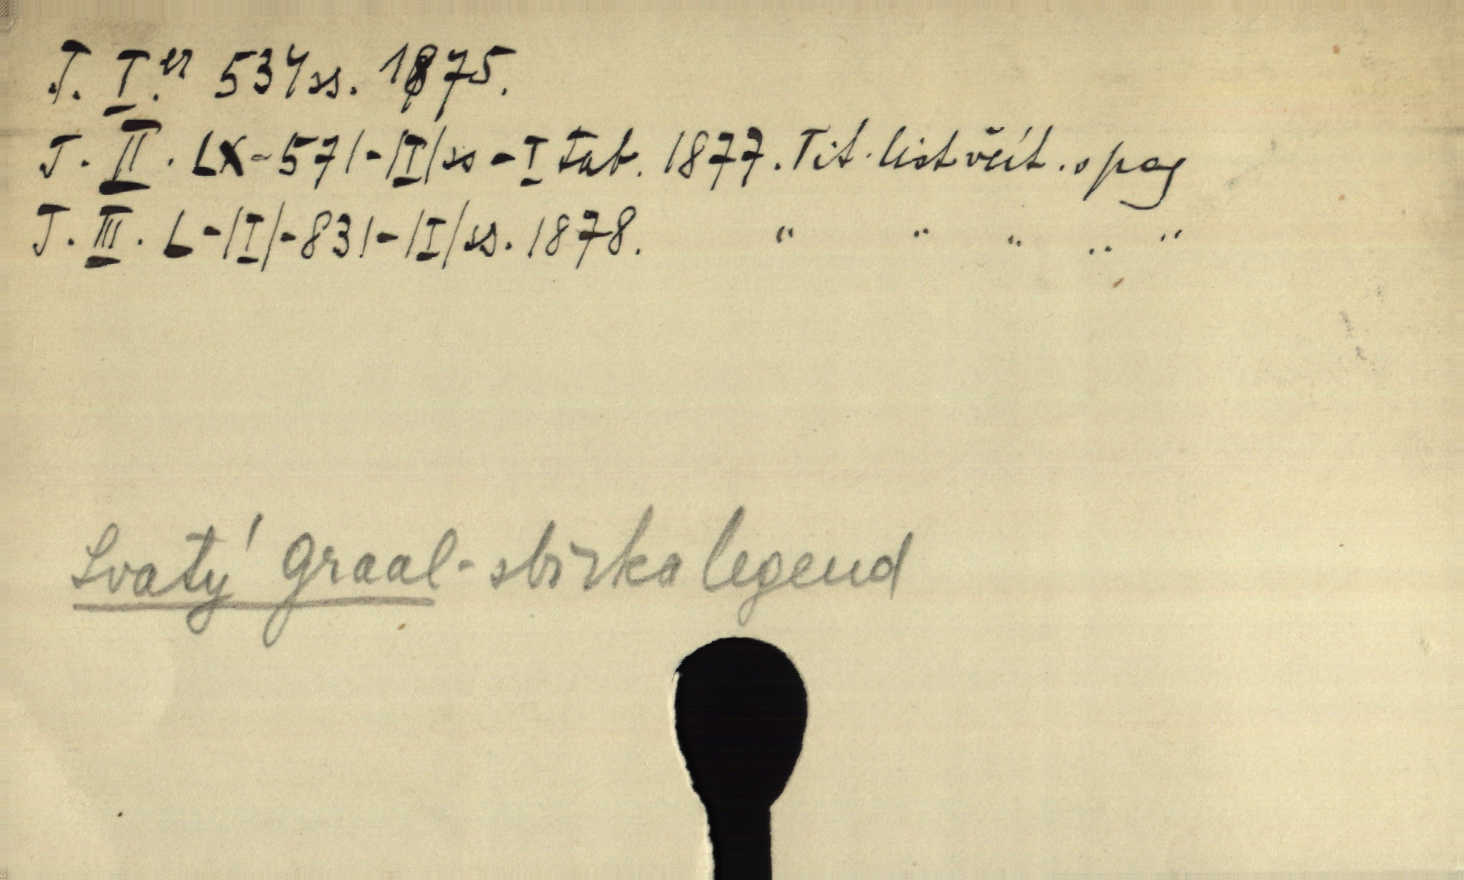 T. I.er 534 ss. 1875.
T. II. LX-571-/I/ss-I tab. 1877. Tit. list včít. s pag
T. III. L-/I/-831-/I/ss. 1878. " " " " "
Svatý Graal - sbírka legend